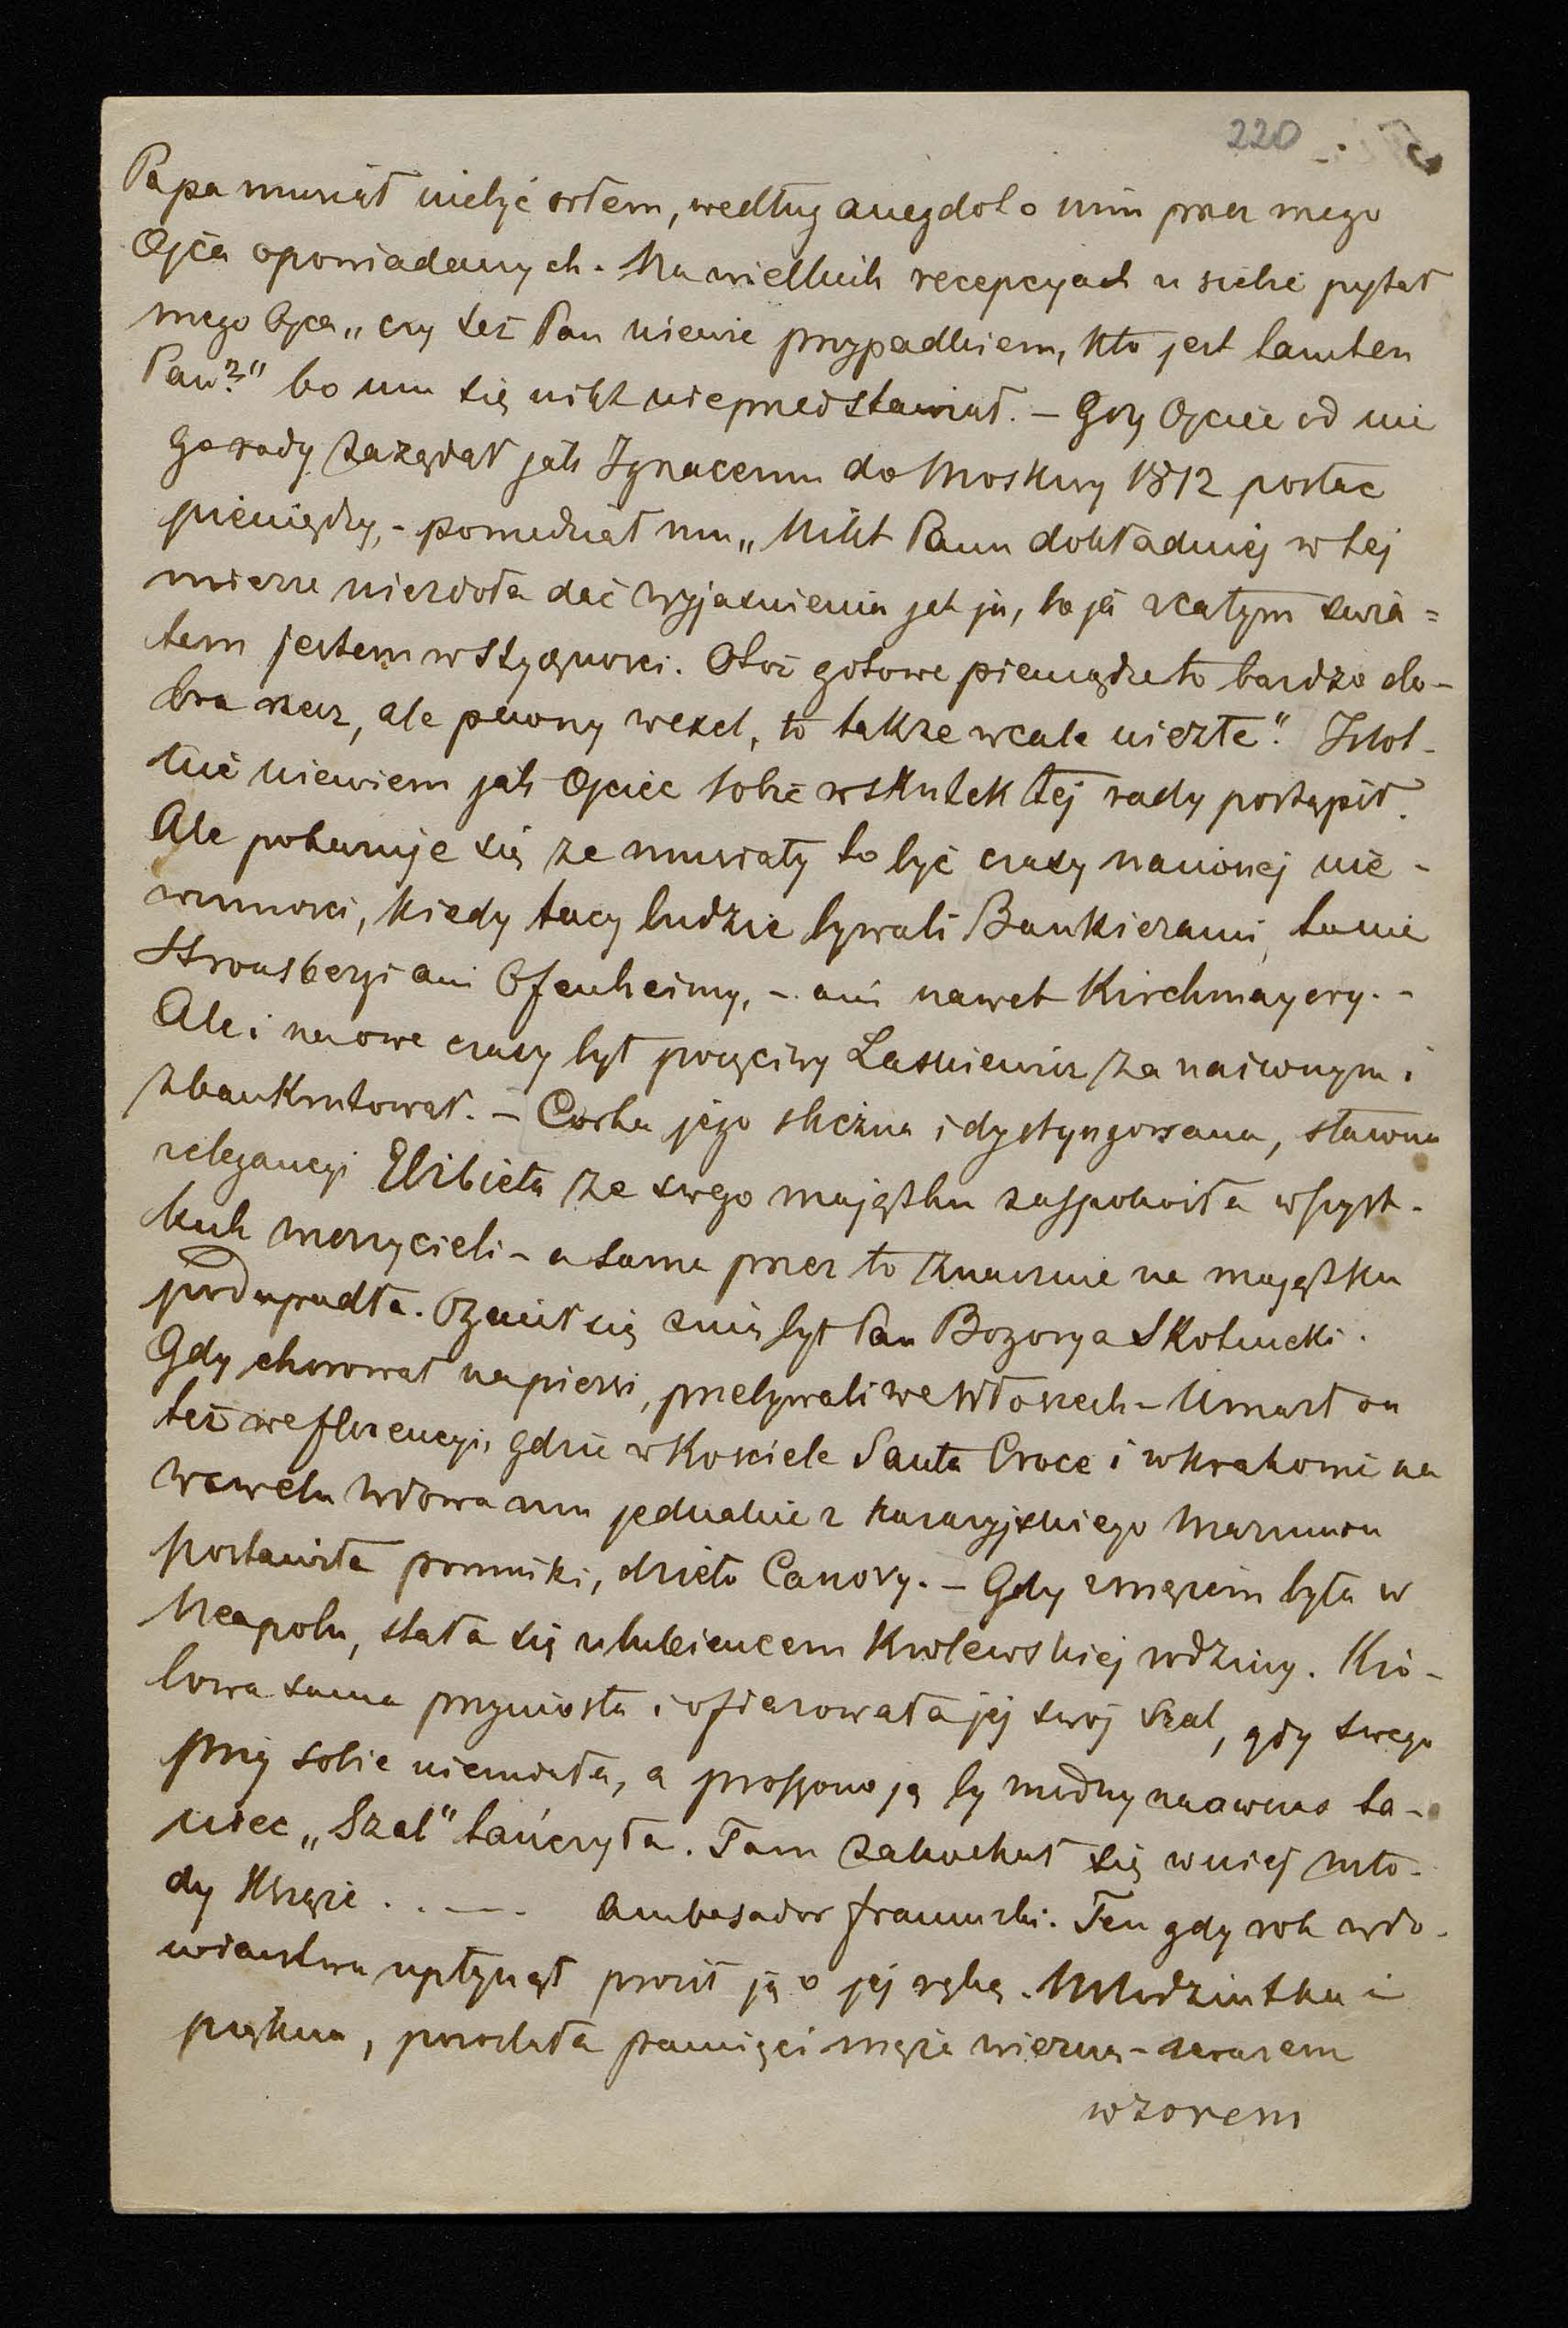 220
Papa musiał niebyć orłem, według anegdot o nim przez mego
Ojca opowiadanych. Na wielkich recepcyach u siebie pytał
mego Ojca „czy też Pan niewie przypadkiem, kto jest tamten
Pan?" bo mu się nikt nieprzedstawiał. – Gdy Ojciec od nie
go rady zażądał jak Ignacemu do Moskwy 1812 posłać
pieniędzy, – powiedział mu „Nikt Panu dokładniej w tej
mierze niezdoła dać wyjasnienia jak ja, bo ja zcałym swia=
tem jestem w styczności. Otoż gotowe pieniądze to bardzo do-
bra rzecz, ale pewny wexel, to także wcale nieźle". Istot-
nie niewiem jak Ojciec sobie wskutek tej rady postąpił.
Ale pokazuje się ze musiały to być czasy naiwnej nie-
winnosci, kiedy tacy ludzie bywali Bankierami, to nie
Strousbergi ani Ofenheimy, – ani nawet Kirchmayery. –
Ale i na owe czasy był poczciwy Laskiewicz za naiwnym i
zbankrutował. – Corka jego sliczna i dystyngowana, sławna
zelegancyi Elzbieta ze swego majątku zaspokoiła wszyst-
kich wierzycieli – a sama przez to znacznie na majątku
podupadła. Ożenił się znią był Pan Bozorya Skotnicki.
Gdy chorował napiersi, przebywali we Włoszech – Umarł on
też we florencyi, gdzie w Kosciele Santa Croce i w Krakowie na
Wawelu wdowa mu jednakie z kararyjskiego marmuru
postawiła pomniki, dzieło Canovy. – Gdy zmężem była w
Neapolu, stała się ulubieńcem Krolewskiej rodziny. Kro-
lowa sama przyniosła i ofiarowała jej swoj szal, gdy swego
przy sobie niemiała, a proszono ją by modny naowczas ta-
niec „Szal" tańczyła. Tam zakochał się wniej mło-
dy Książe . . — . ambasador francuzki. Ten gdy rok wdo-
wieństwa upłynął prosił ją o jej rękę. Młodziutka i
piękna, pozostała pamięci męża wierną – zarazem
wzorem